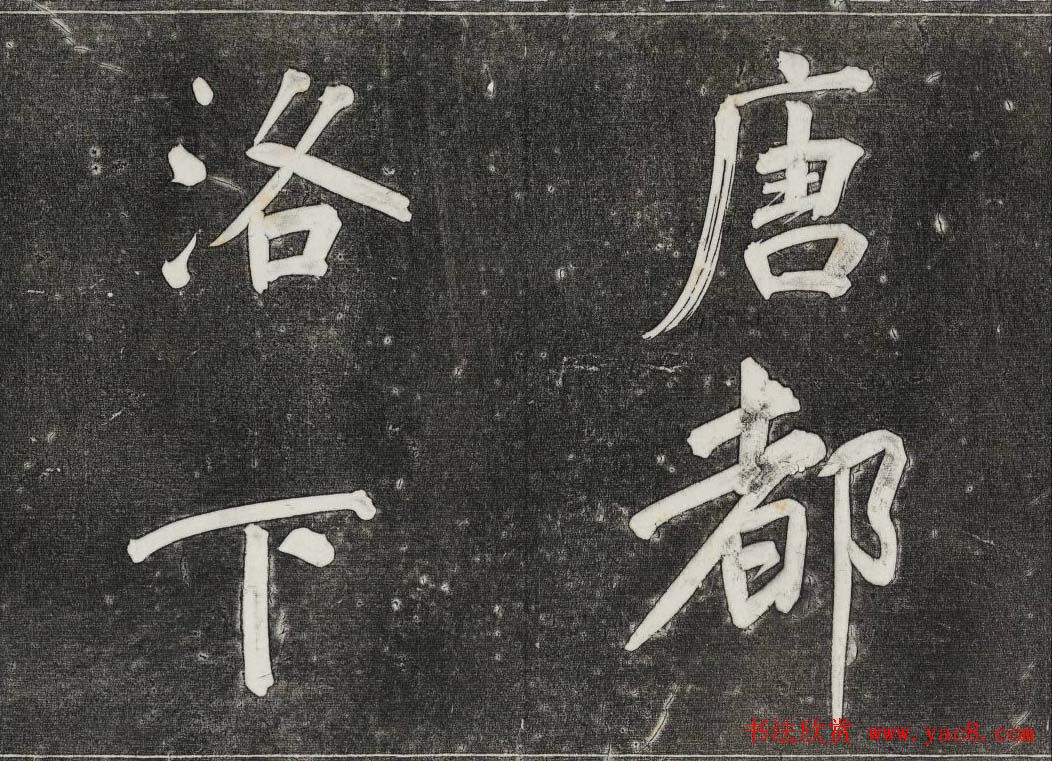 唐都
洛下
书法欣赏 www.yac8.com